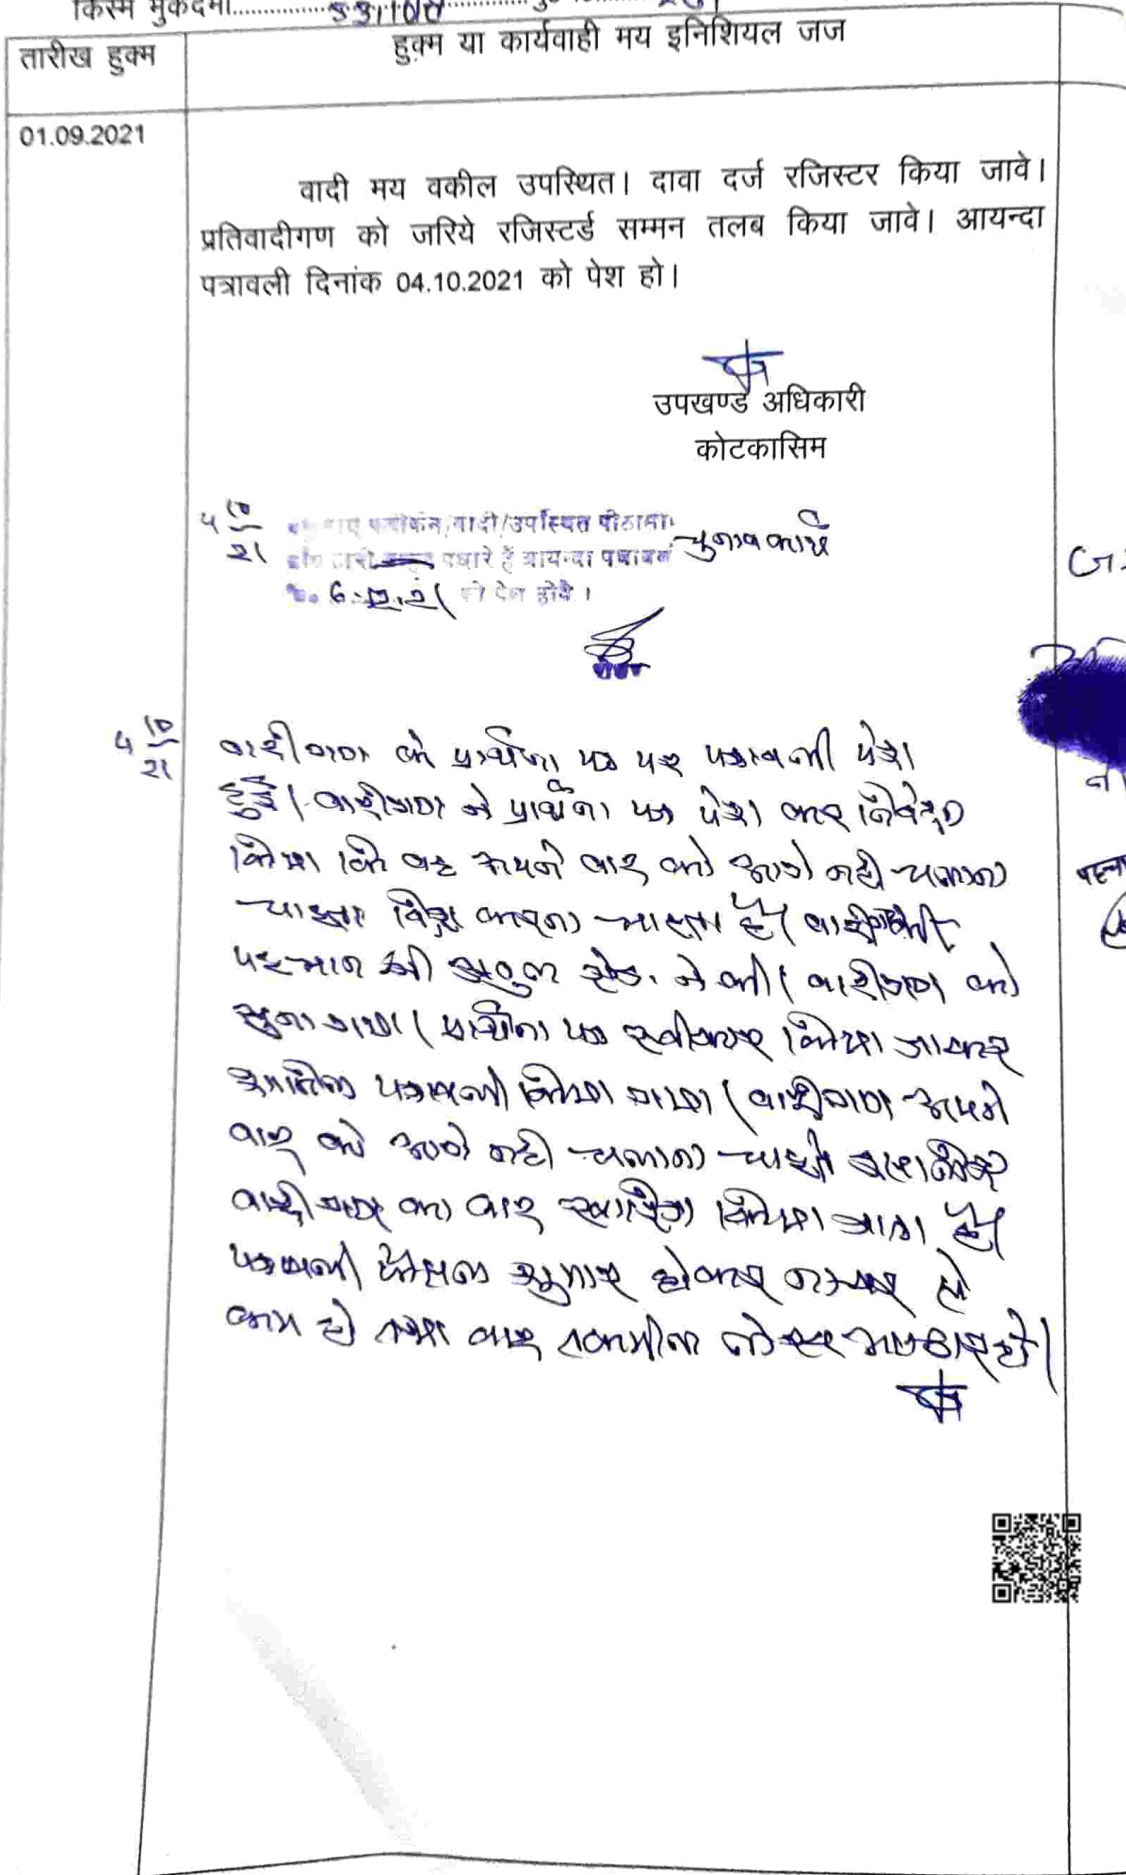 किस्म मुकदमा
तारीख हुक्म
हुक्म या कार्यवाही मय इनिशियल जज
01.09.2021
वादी मय वकील उपस्थित। दावा दर्ज रजिस्टर किया जावे।
प्रतिवादीगण को जरिये रजिस्टर्ड सम्मन तलब किया जावे। आयन्दा
पत्रावली दिनांक 04.10.2021 को पेश हो।
उपखण्ड अधिकारी
कोटकासिम
4 10/21
वादी/उपस्थित पीठासी चुनाव कार्य
पधारे हैं आयन्दा
को पेश होवे।
4 10/21
वादीगण के प्रार्थना पत्र पर पत्रावली पेश
हुई। वादीगण ने प्रार्थना पत्र पेश कर निवेदन
किया कि वह अपने वाद को आगे नही चलाना
चाहता विड्रा करना चाहता है। वादीगण की
पहचान श्री ने की। वादीगण को
सुना गया। प्रार्थना पत्र स्वीकार किया जाकर
शामिल पत्रावली किया गया। वादीगण अपने
वाद को आगे नही चलाना चाहते
वादीगण का वाद खारिज किया जाता है।
पत्रावली फैसल शुमार होकर नम्बर से
कम हो तथा बाद तकमील